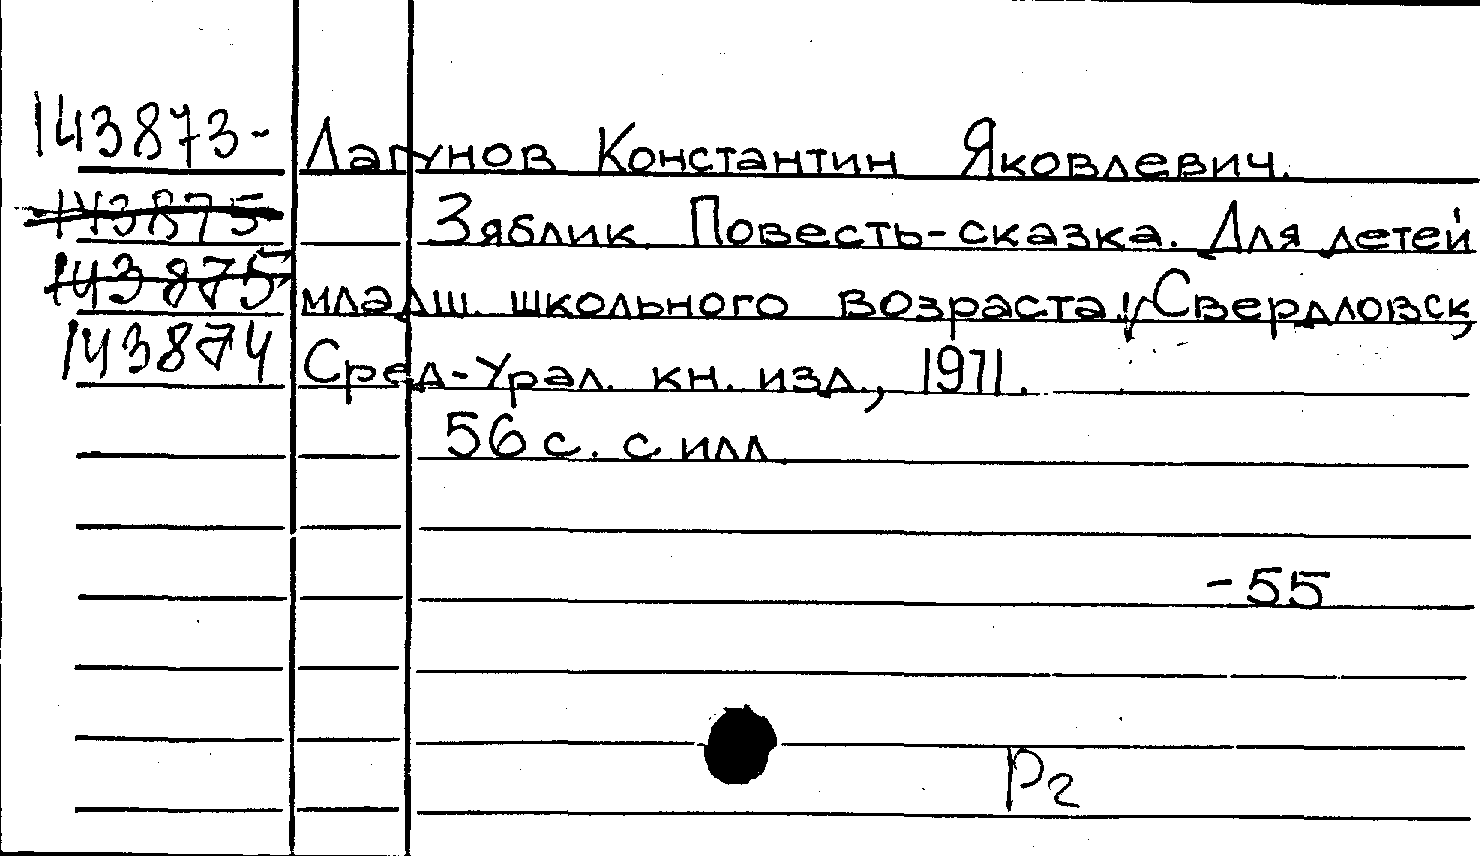 143873- Лагунов Константин Яковлевич.
143875 Зяблик. Повесть-сказка. Для детей
143875 младш. школьного возраста. Свердловск,
143874 Сред-Урал. кн. изд., 1971.
56 с. с илл.
-55
Рг